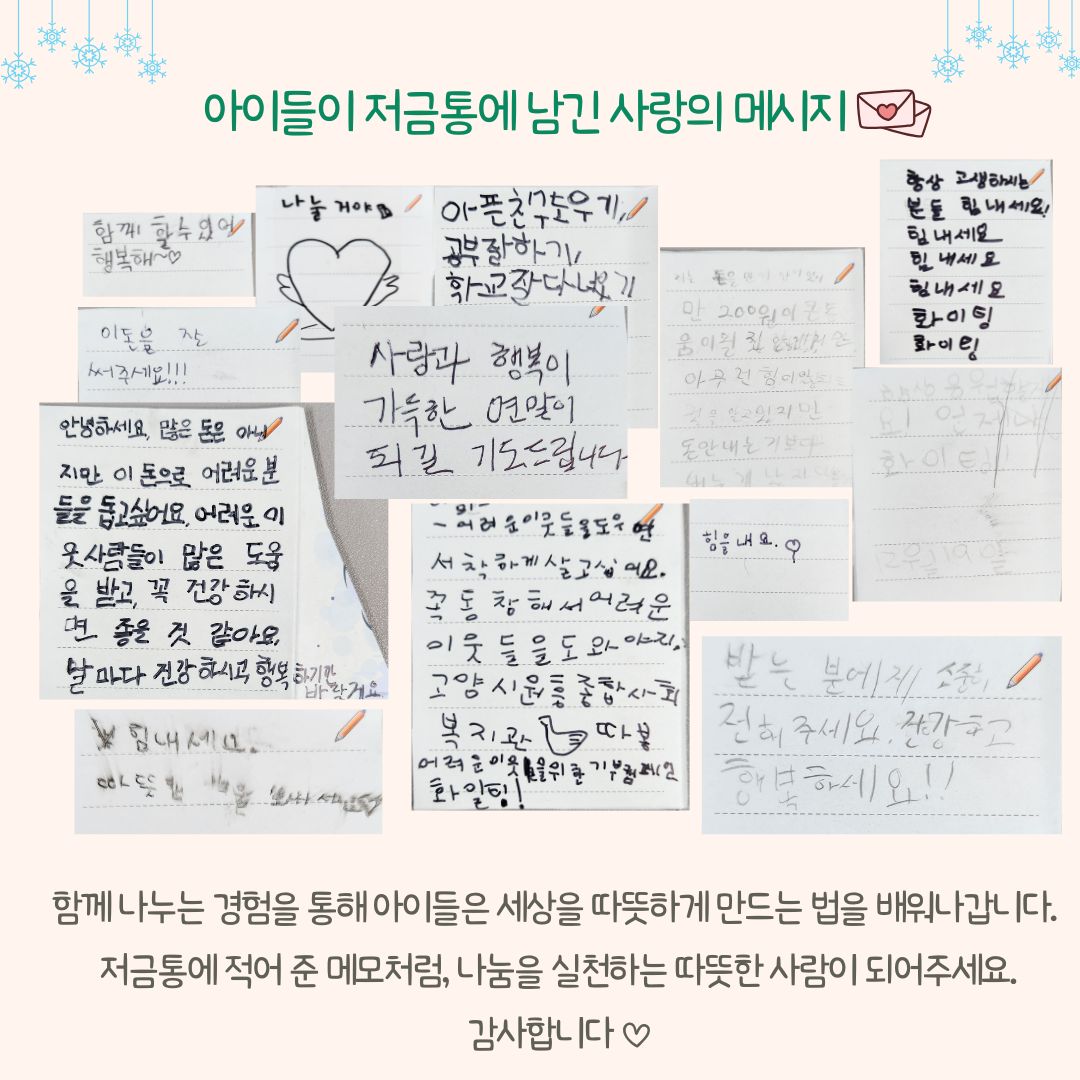 아이들이 저금통에 남긴 사랑의 메시지
함께 할 수 있어
행복해~♡
나눌거야
아픈친구도우기,
공부잘하기,
학교잘다녀오기
항상 고생하시는
분들 힘내세요!
힘내세요
힘내세요
힘내세요
화이팅
화이팅
이돈을 잘
써주세요!!!
사랑과 행복이
가득한 연말이
되길 기도드립니다
만 200원이 큰 도
움이 될
아무런 힘이
돈안내는거보다
안녕하세요, 많은 돈은 아니
지만 이 돈으로 어려운 분
들을 돕고싶어요, 어려운 이
웃사람들이 많은 도움
을 받고, 꼭 건강하시
면 좋을 것 같아요,
날마다 건강하시고, 행복하기만
바랄게요
- 어려운이웃들을도우면
서 착하게 살고십어요.
쪽통참해서어려운
이웃들을도와야지,
고양시원흥종합사회
복지관 따봉
어려운이웃들을위한기부캠페인
화일팅!
힘을내요. ♡
화이팅
힘내세요.
따뜻한
받는 분에게 소중히
전해주세요. 건강하고
행복하세요!!
함께 나누는 경험을 통해 아이들은 세상을 따뜻하게 만드는 법을 배워나갑니다.
저금통에 적어 준 메모처럼, 나눔을 실천하는 따뜻한 사람이 되어주세요.
감사합니다 ♡